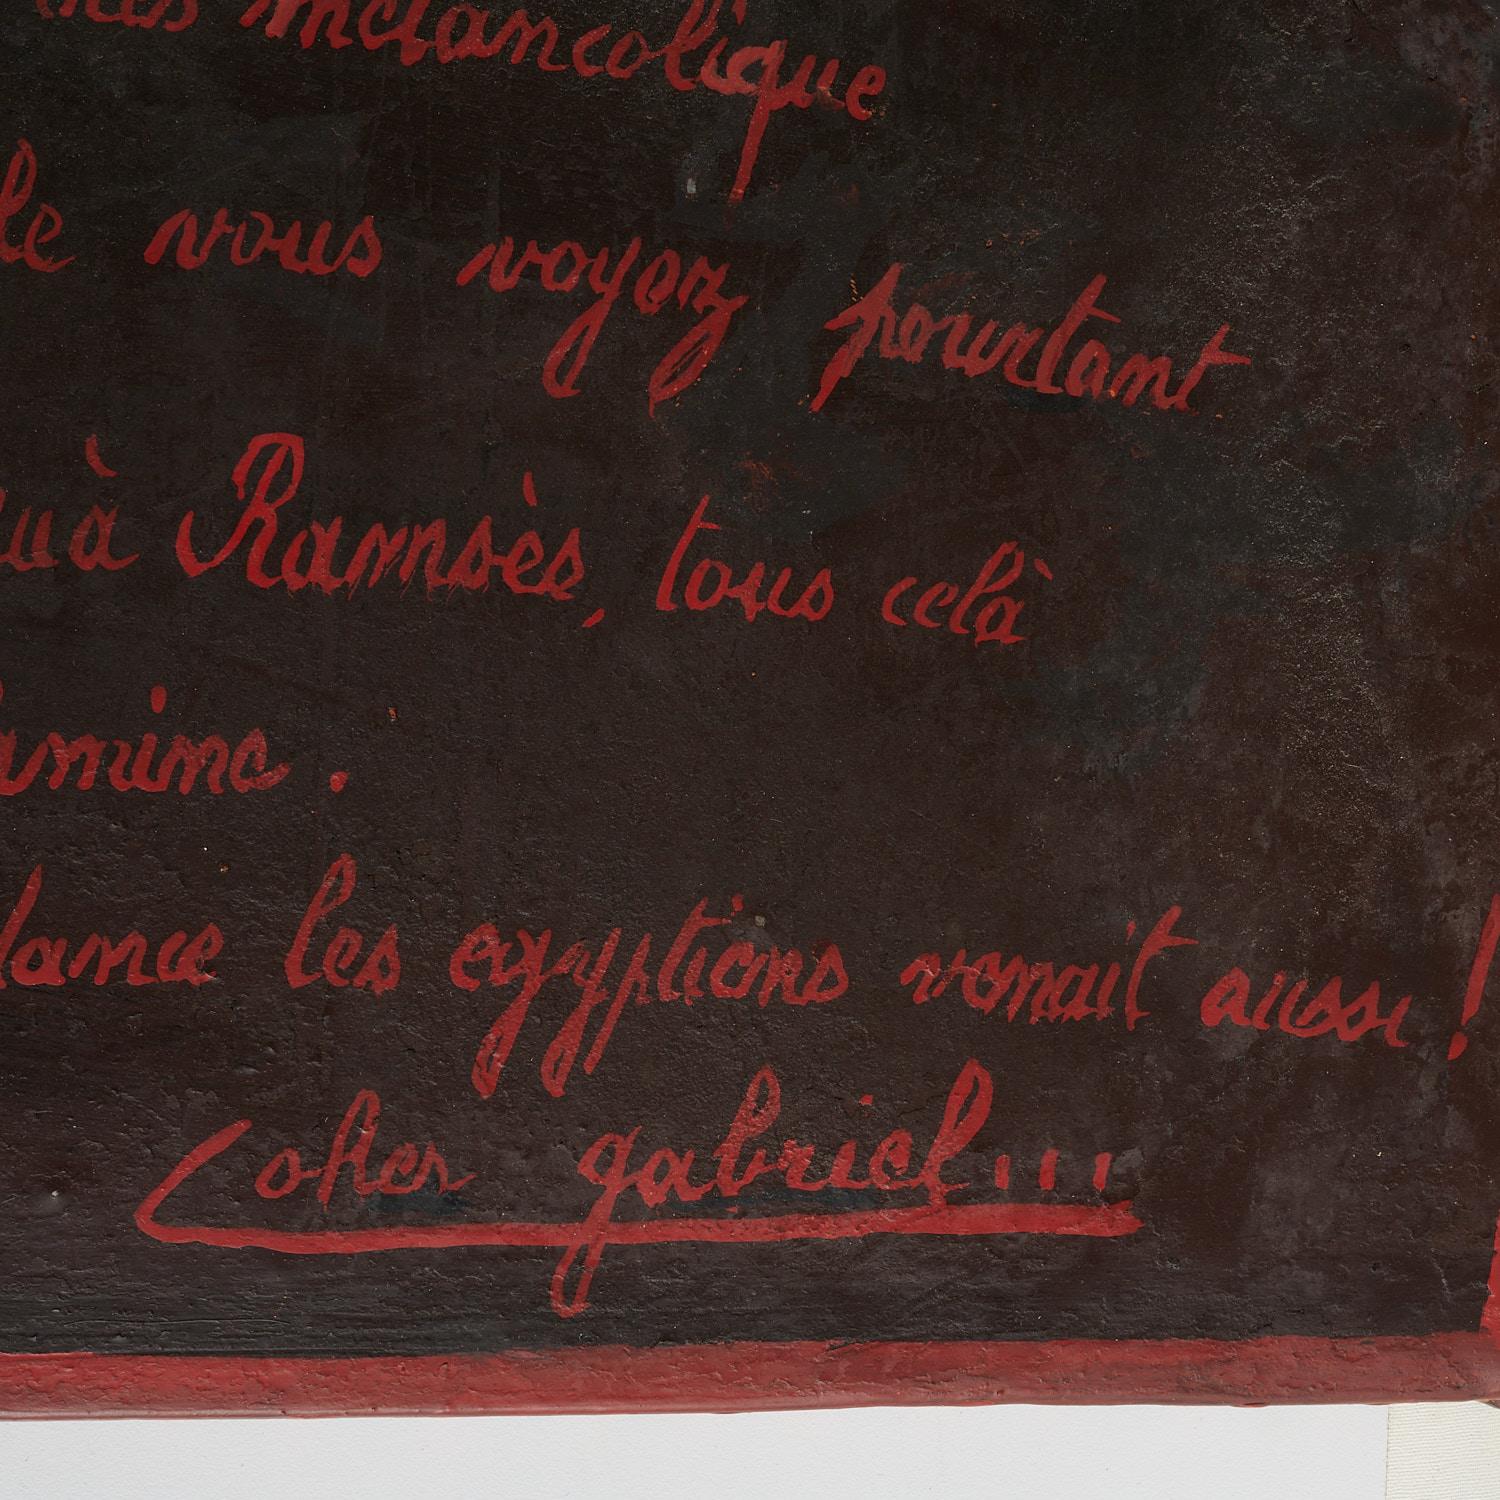 très mélancolique
le vous voyez pourtant
quà Ramsès, tous celà
amine.
dance les egyptiens vonait aussi !
Coher gabriel...